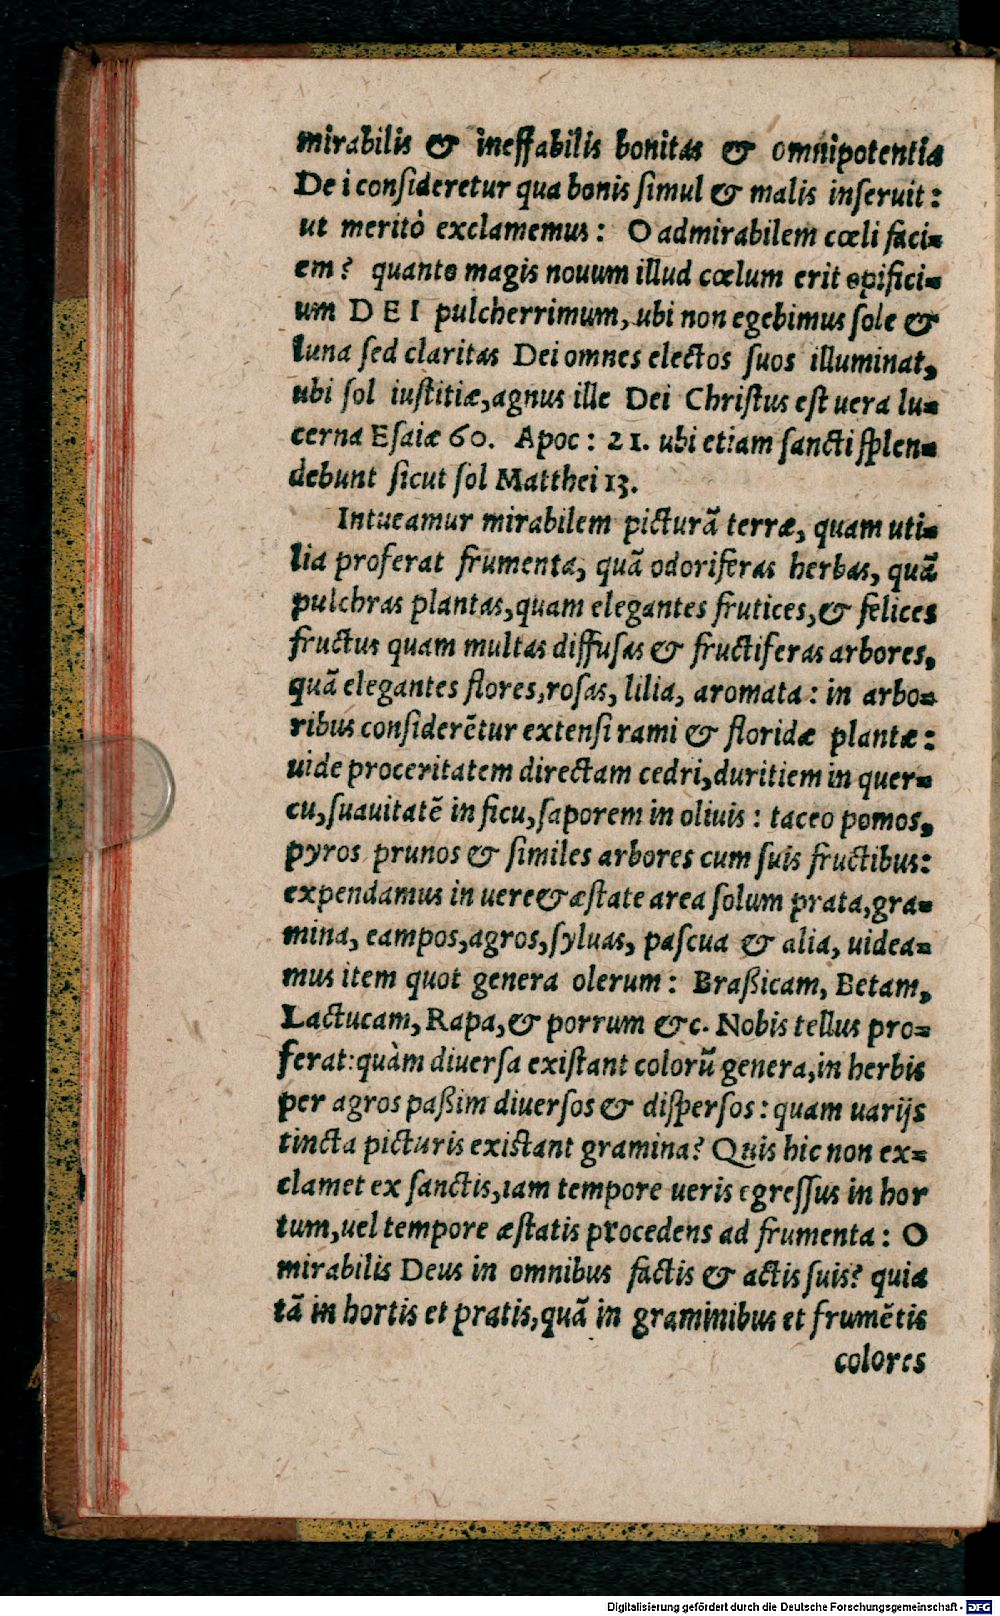 mirabilis & ineffabilis bonitas & omnipotentia
Dei consideretur qua bonis simul & malis inseruit:
ut meritò exclamemus: O admirabilem cœli faci=
em? quanto magis nouum illud cœlum erit opifici=
um DEI pulcherrimum, ubi non egebimus sole &
luna sed claritas Dei omnes electos suos illuminat,
ubi sol iustitiæ, agnus ille Dei Christus est uera lu=
cerna Esaiæ 60. Apoc: 21. ubi etiam sancti splen=
debunt sicut sol Matthei 13.
Intueamur mirabilem picturã terræ, quam uti=
lia proferat frumenta, quã odoriferas herbas, quã
pulchras plantas, quam elegantes frutices, & felices
fructus quam multas diffusas & fructiferas arbores,
quã elegantes flores, rosas, lilia, aromata: in arbo=
ribus considerẽtur extensi rami & floridæ plantæ:
uide proceritatem directam cedri, duritiem in quer=
cu, suauitatẽ in ficu, saporem in oliuis: taceo pomos,
pyros prunos & similes arbores cum suis fructibus:
expendamus in uere & æstate area solum prata, gra=
mina, eampos, agros, syluas, pascua & alia, uidea=
mus item quot genera olerum: Braßicam, Betam,
Lactucam, Rapa, & porrum &c. Nobis tellus pro=
ferat: quàm diuersa existant colorũ genera, in herbis
per agros paßim diuersos & dispersos: quam uarijs
tincta picturis existant gramina? Quis hic non ex=
clamet ex sanctis, iam tempore ueris egressus in hor
tum, uel tempore æstatis procedens ad frumenta: O
mirabilis Deus in omnibus factis & actis suis? quia
tã in hortis et pratis, quã in graminibus et frumẽtis
colores
Digitalisierung gefördert durch die Deutsche Forschungsgemeinschaft - DFG